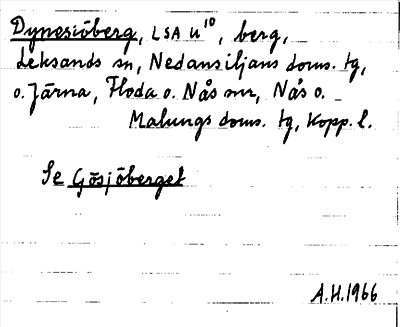 Dynesjöberg, LSA U¹⁰, berg,
Leksands sn, Nedansiljans doms. tg,
o. Järna, Floda o. Nås snr, Nås o.
Malungs doms. tg, Kopp. l.
Se Gösjöberget
A.H. 1966